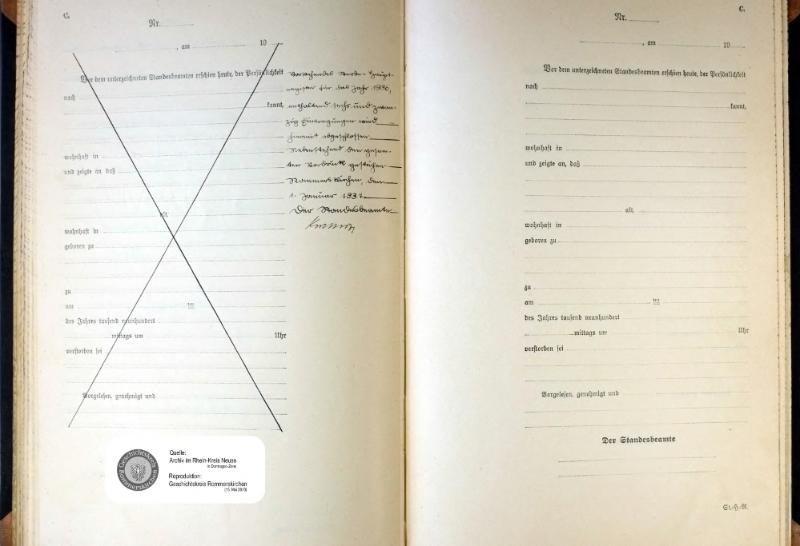 C.
Nr.
, am 19
Vor dem unterzeichneten Standesbeamten erschien heute, der Persönlichkeit
nach
kannt,
wohnhaft in
und zeigte an, daß
alt
wohnhaft in
geboren zu
zu
am
des Jahres tausend neunhundert
mittags um Uhr
verstorben sei
Vorgelesen, genehmigt und
Vorstehendes Sterbe-Haupt-
register für das Jahr 1930,
enthaltend sechs und zwan-
zig Eintragungen wird
hiermit abgeschlossen.
Nebenstehend der gesam-
te Vordruck gestrichen
Rommerskirchen, den
1. Januar 1931
Der Standesbeamte
Quelle:
Archiv im Rhein-Kreis Neuss
in Dormagen-Zons
Reproduktion:
Geschichtskreis Rommerskirchen
Geschichtskreis
Rommerskirchen
C.
Nr.
, am 19
Vor dem unterzeichneten Standesbeamten erschien heute, der Persönlichkeit
nach
kannt,
wohnhaft in
und zeigte an, daß
alt
wohnhaft in
geboren zu
zu
am
des Jahres tausend neunhundert
mittags um Uhr
verstorben sei
Vorgelesen, genehmigt und
Der Standesbeamte